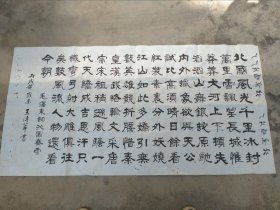 北國風光千里冰封
萬里雪飄望長城惟
大河上下頓失
滔滔山舞銀蛇原馳
象欲與天公
試比高須晴日看
紅裝素裹分外妖嬈
江山如此多嬌引無
數英雄
皇漢武略輸文采唐
宗宋祖稍遜風騷一
代天驕成吉思汗只
射大雕俱往
矣數風流人物還看
今朝
毛澤東詞沁園春雪
丙戌年